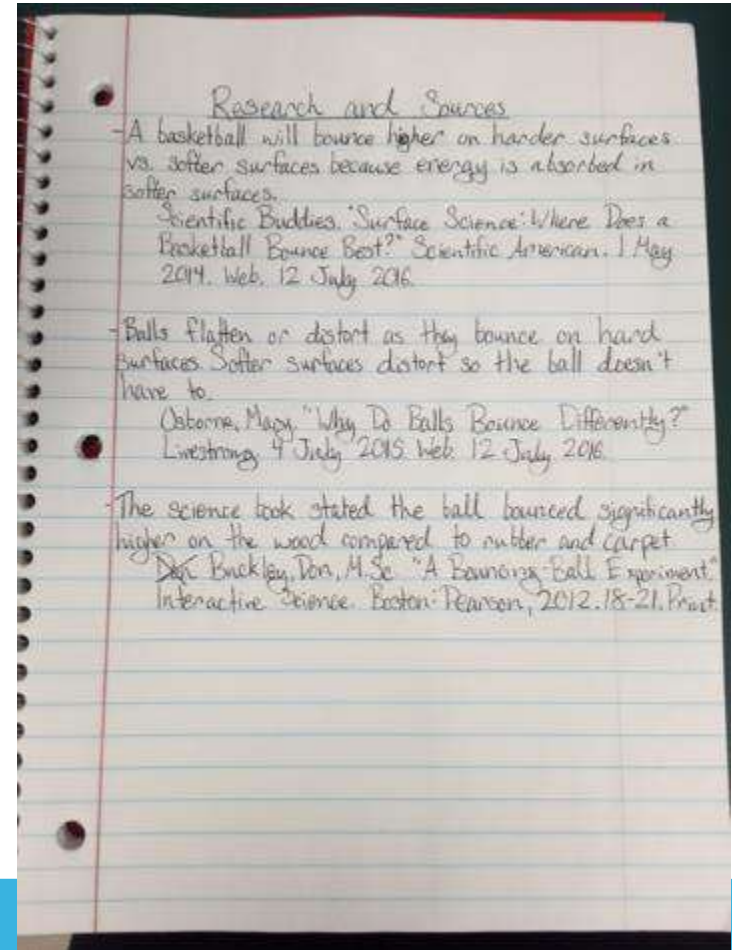 Research and Sources
-A basketball will bounce higher on harder surfaces
vs. softer surfaces because energy is absorbed in
softer surfaces.
Scientific Buddies. "Surface Science: Where Does a
Basketball Bounce Best?" Scientific American. 1 May
2014. Web. 12 July 2016.
-Balls flatten or distort as they bounce on hard
surfaces. Softer surfaces distort so the ball doesn't
have to.
Osborne, "Why Do Balls Bounce Differently?"
Livestrong. 4 July 2015. Web. 12 July 2016.
-The science book stated the ball bounced significantly
higher on the wood compared to rubber and carpet.
Buckley, Don, M.Sc. "A Bouncing-Ball Experiment."
Interactive Science. Boston: Pearson, 2012. 18-21. Print.